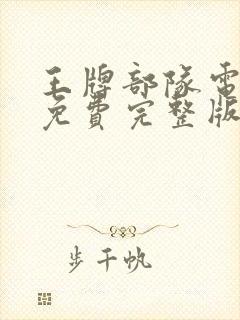 王牌部隊電
免費完整版
步千帆